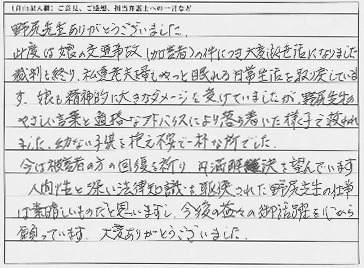 (自由記入欄:ご意見、ご感想、担当弁護士への一言など)
野尻先生ありがとうございました。
此度は娘の交通事故(加害者)の件につき大変お世話になりました
裁判も終り、私達老夫婦もやっと眠れる日常生活を取り戻していま
す。娘も精神的に大きなダメージを受けていましたが、野尻先生の
やさしい言葉と適格なアドバイスにより落ち着いた様子で救われ
ました。幼ない子供を抱え不安で一杯な所でした。
今は被害者の方の回復を祈り円満解決を望んでいます
人間性と深い法律知識を取得された野尻先生の仕事
は素晴しいものだと思いますし、今後の益々の御活躍を心から
願っています。大変ありがとうございました。